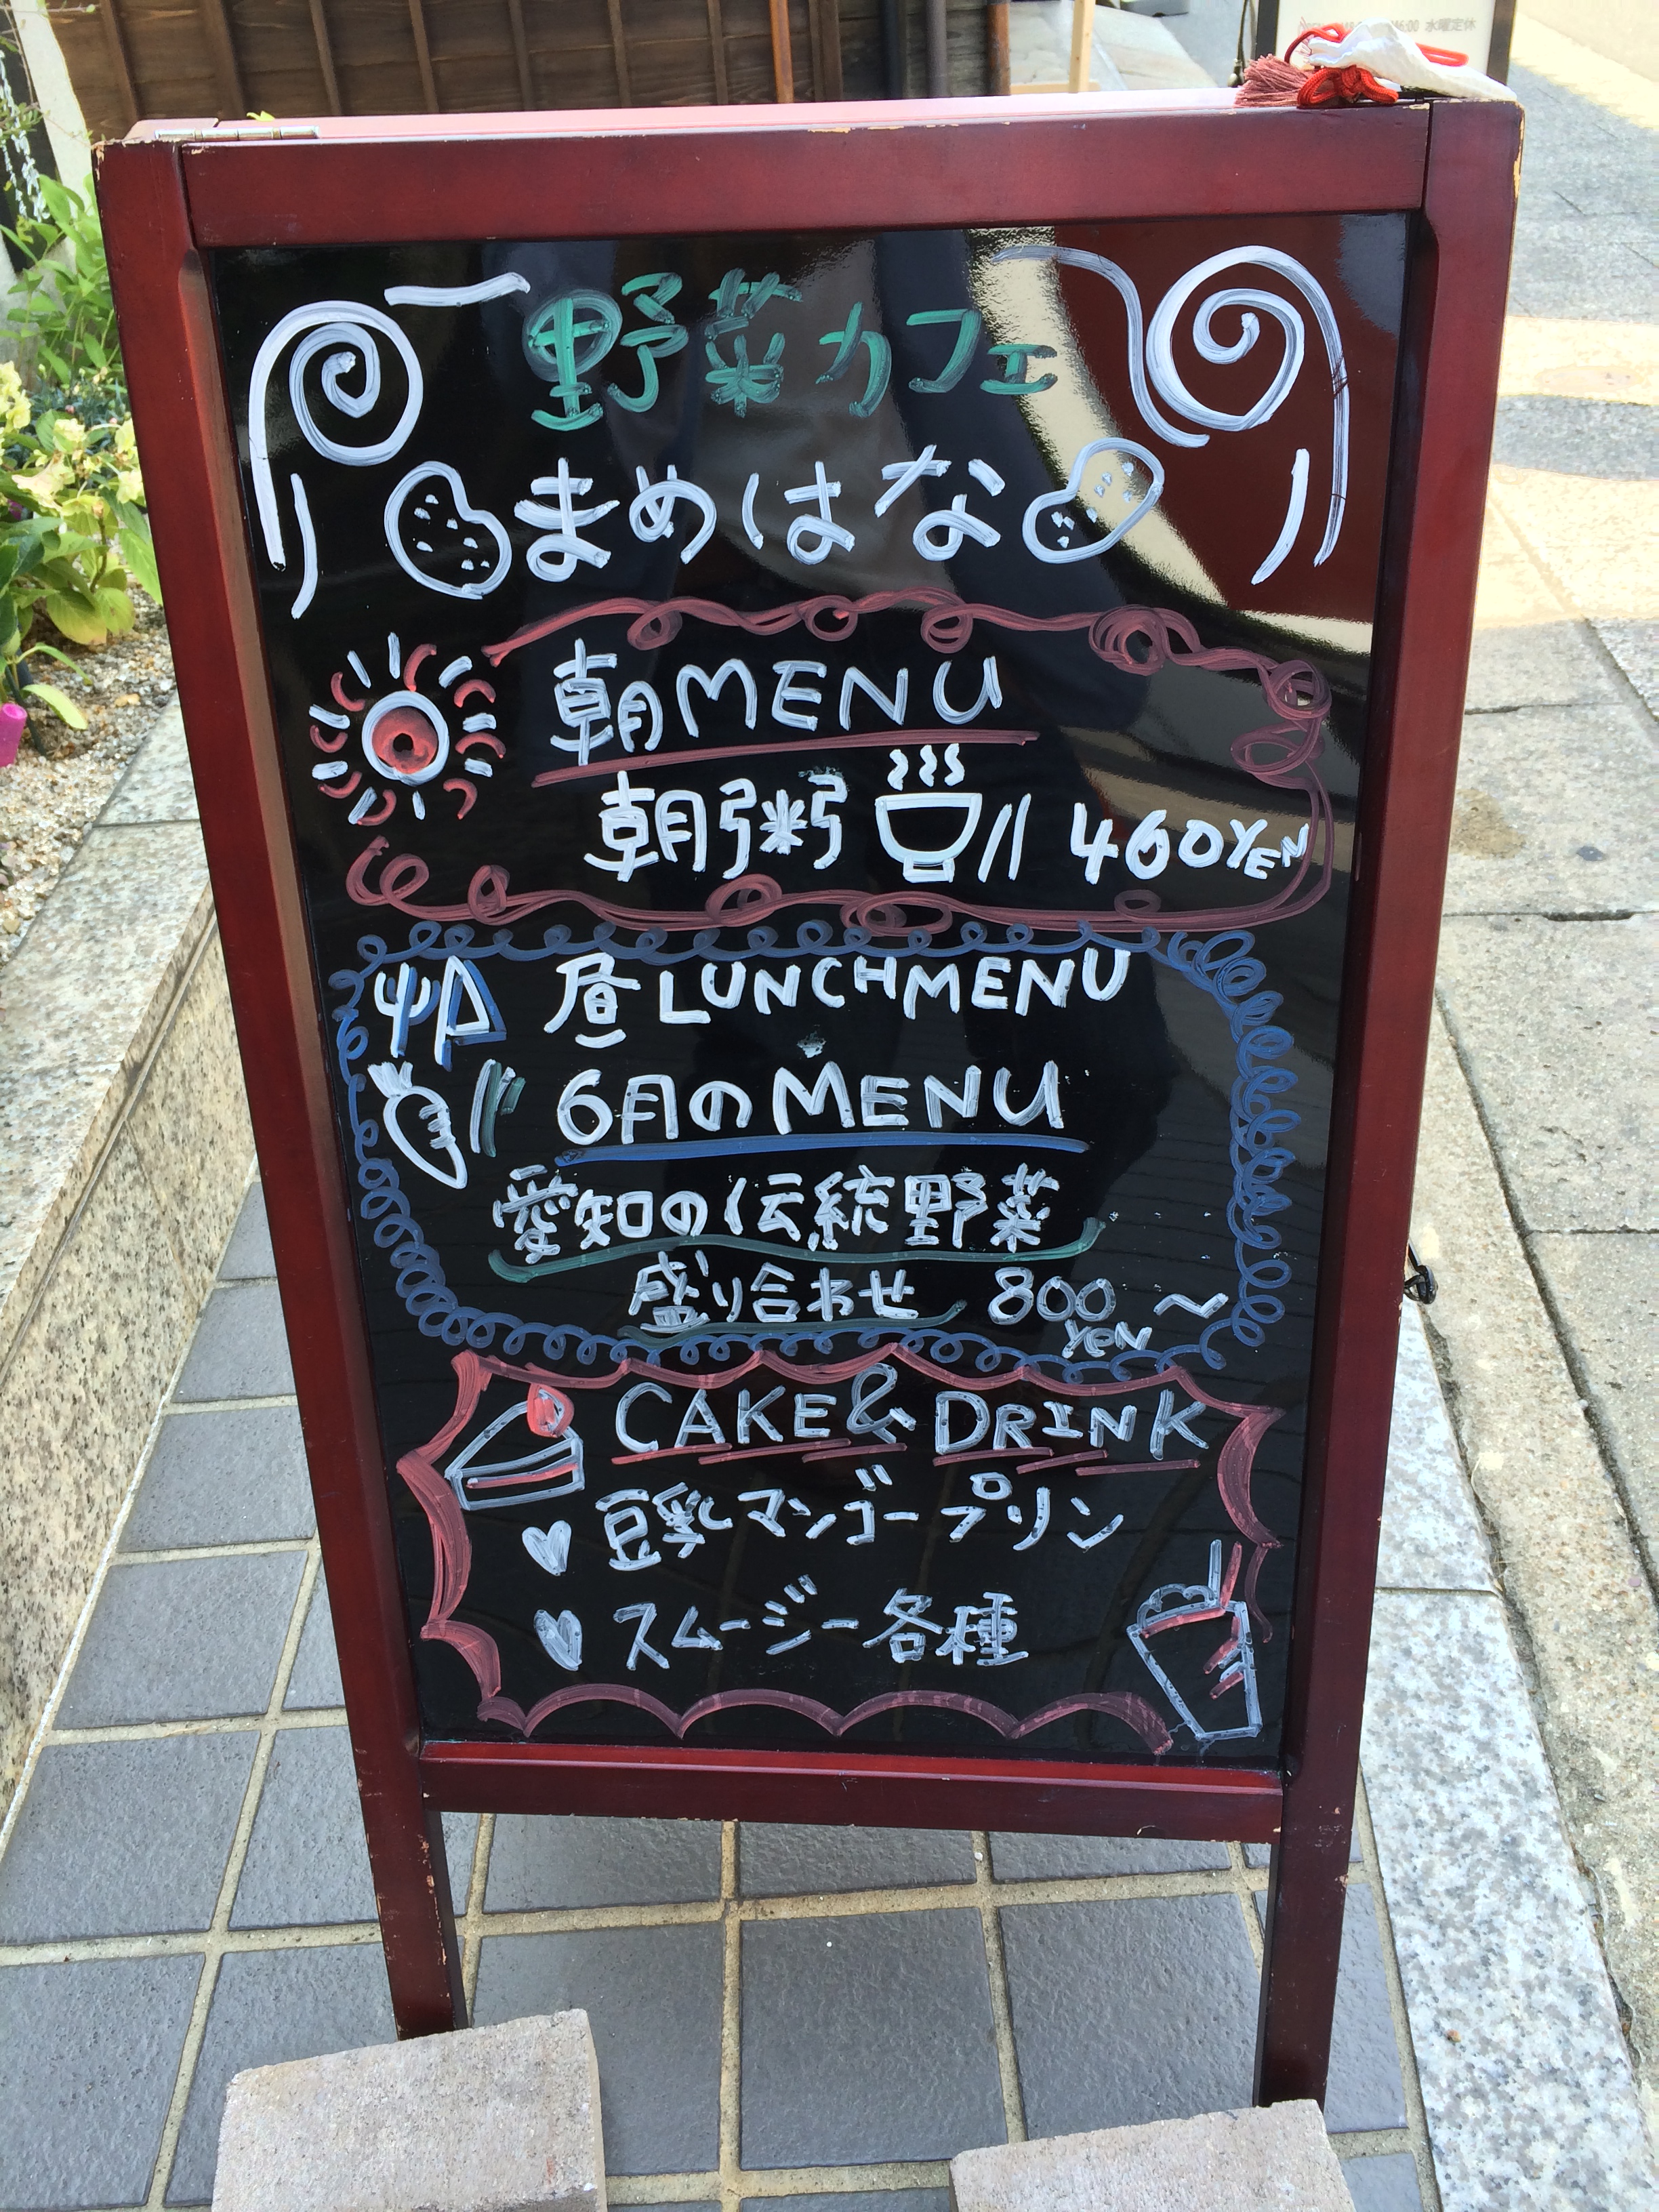 水曜定休
野菜カフェ
まめはな
朝MENU
朝粥 460YEN
昼LUNCHMENU
6月のMENU
愛知の伝統野菜
盛り合わせ 800YEN〜
CAKE&DRINK
豆乳マンゴープリン
スムージー各種